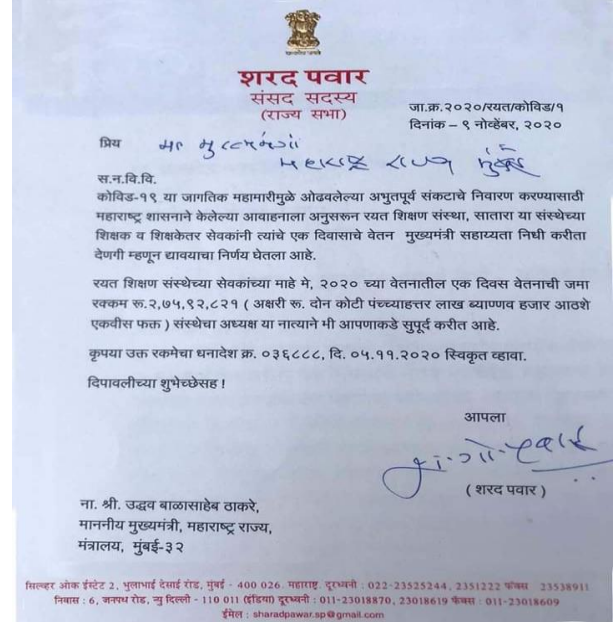 शरद पवार
संसद सदस्य
(राज्य सभा)
जा.क्र.२०२०/रयत/कोविड/१
दिनांक – ९ नोव्हेंबर, २०२०
प्रिय मा मुख्यमंत्री
महाराष्ट्र राज्य मुंबई
स.न.वि.वि.
कोविड-१९ या जागतिक महामारीमुळे ओढवलेल्या अभुतपूर्व संकटाचे निवारण करण्यासाठी
महाराष्ट्र शासनाने केलेल्या आवाहनाला अनुसरून रयत शिक्षण संस्था, सातारा या संस्थेच्या
शिक्षक व शिक्षकेतर सेवकांनी त्यांचे एक दिवासाचे वेतन मुख्यमंत्री सहाय्यता निधी करीता
देणगी म्हणून द्यावयाचा निर्णय घेतला आहे.
रयत शिक्षण संस्थेच्या सेवकांच्या माहे मे, २०२० च्या वेतनातील एक दिवस वेतनाची जमा
रक्कम रू.२,७५,९२,८२१ ( अक्षरी रू. दोन कोटी पंच्च्याहत्तर लाख ब्याण्णव हजार आठशे
एकवीस फक्त ) संस्थेचा अध्यक्ष या नात्याने मी आपणाकडे सुपूर्द करीत आहे.
कृपया उक्त रकमेचा धनादेश क्र. ०३६८८८, दि. ०५.११.२०२० स्विकृत व्हावा.
दिपावलीच्या शुभेच्छेसह !
आपला
( शरद पवार )
ना. श्री. उद्धव बाळासाहेब ठाकरे,
माननीय मुख्यमंत्री, महाराष्ट्र राज्य,
मंत्रालय, मुंबई-३२
सिल्व्हर ओक ईस्टेट 2, भुलाभाई देसाई रोड, मुंबई - 400 026. महाराष्ट्र. दूरध्वनी : 022-23525244, 2351222 फॅक्स 23538911
निवास : 6, जनपथ रोड, न्यु दिल्ली - 110 011 (इंडिया) दूरध्वनी : 011-23018870, 23018619 फॅक्स : 011-23018609
ईमेल : sharadpawar.sp@gmail.com